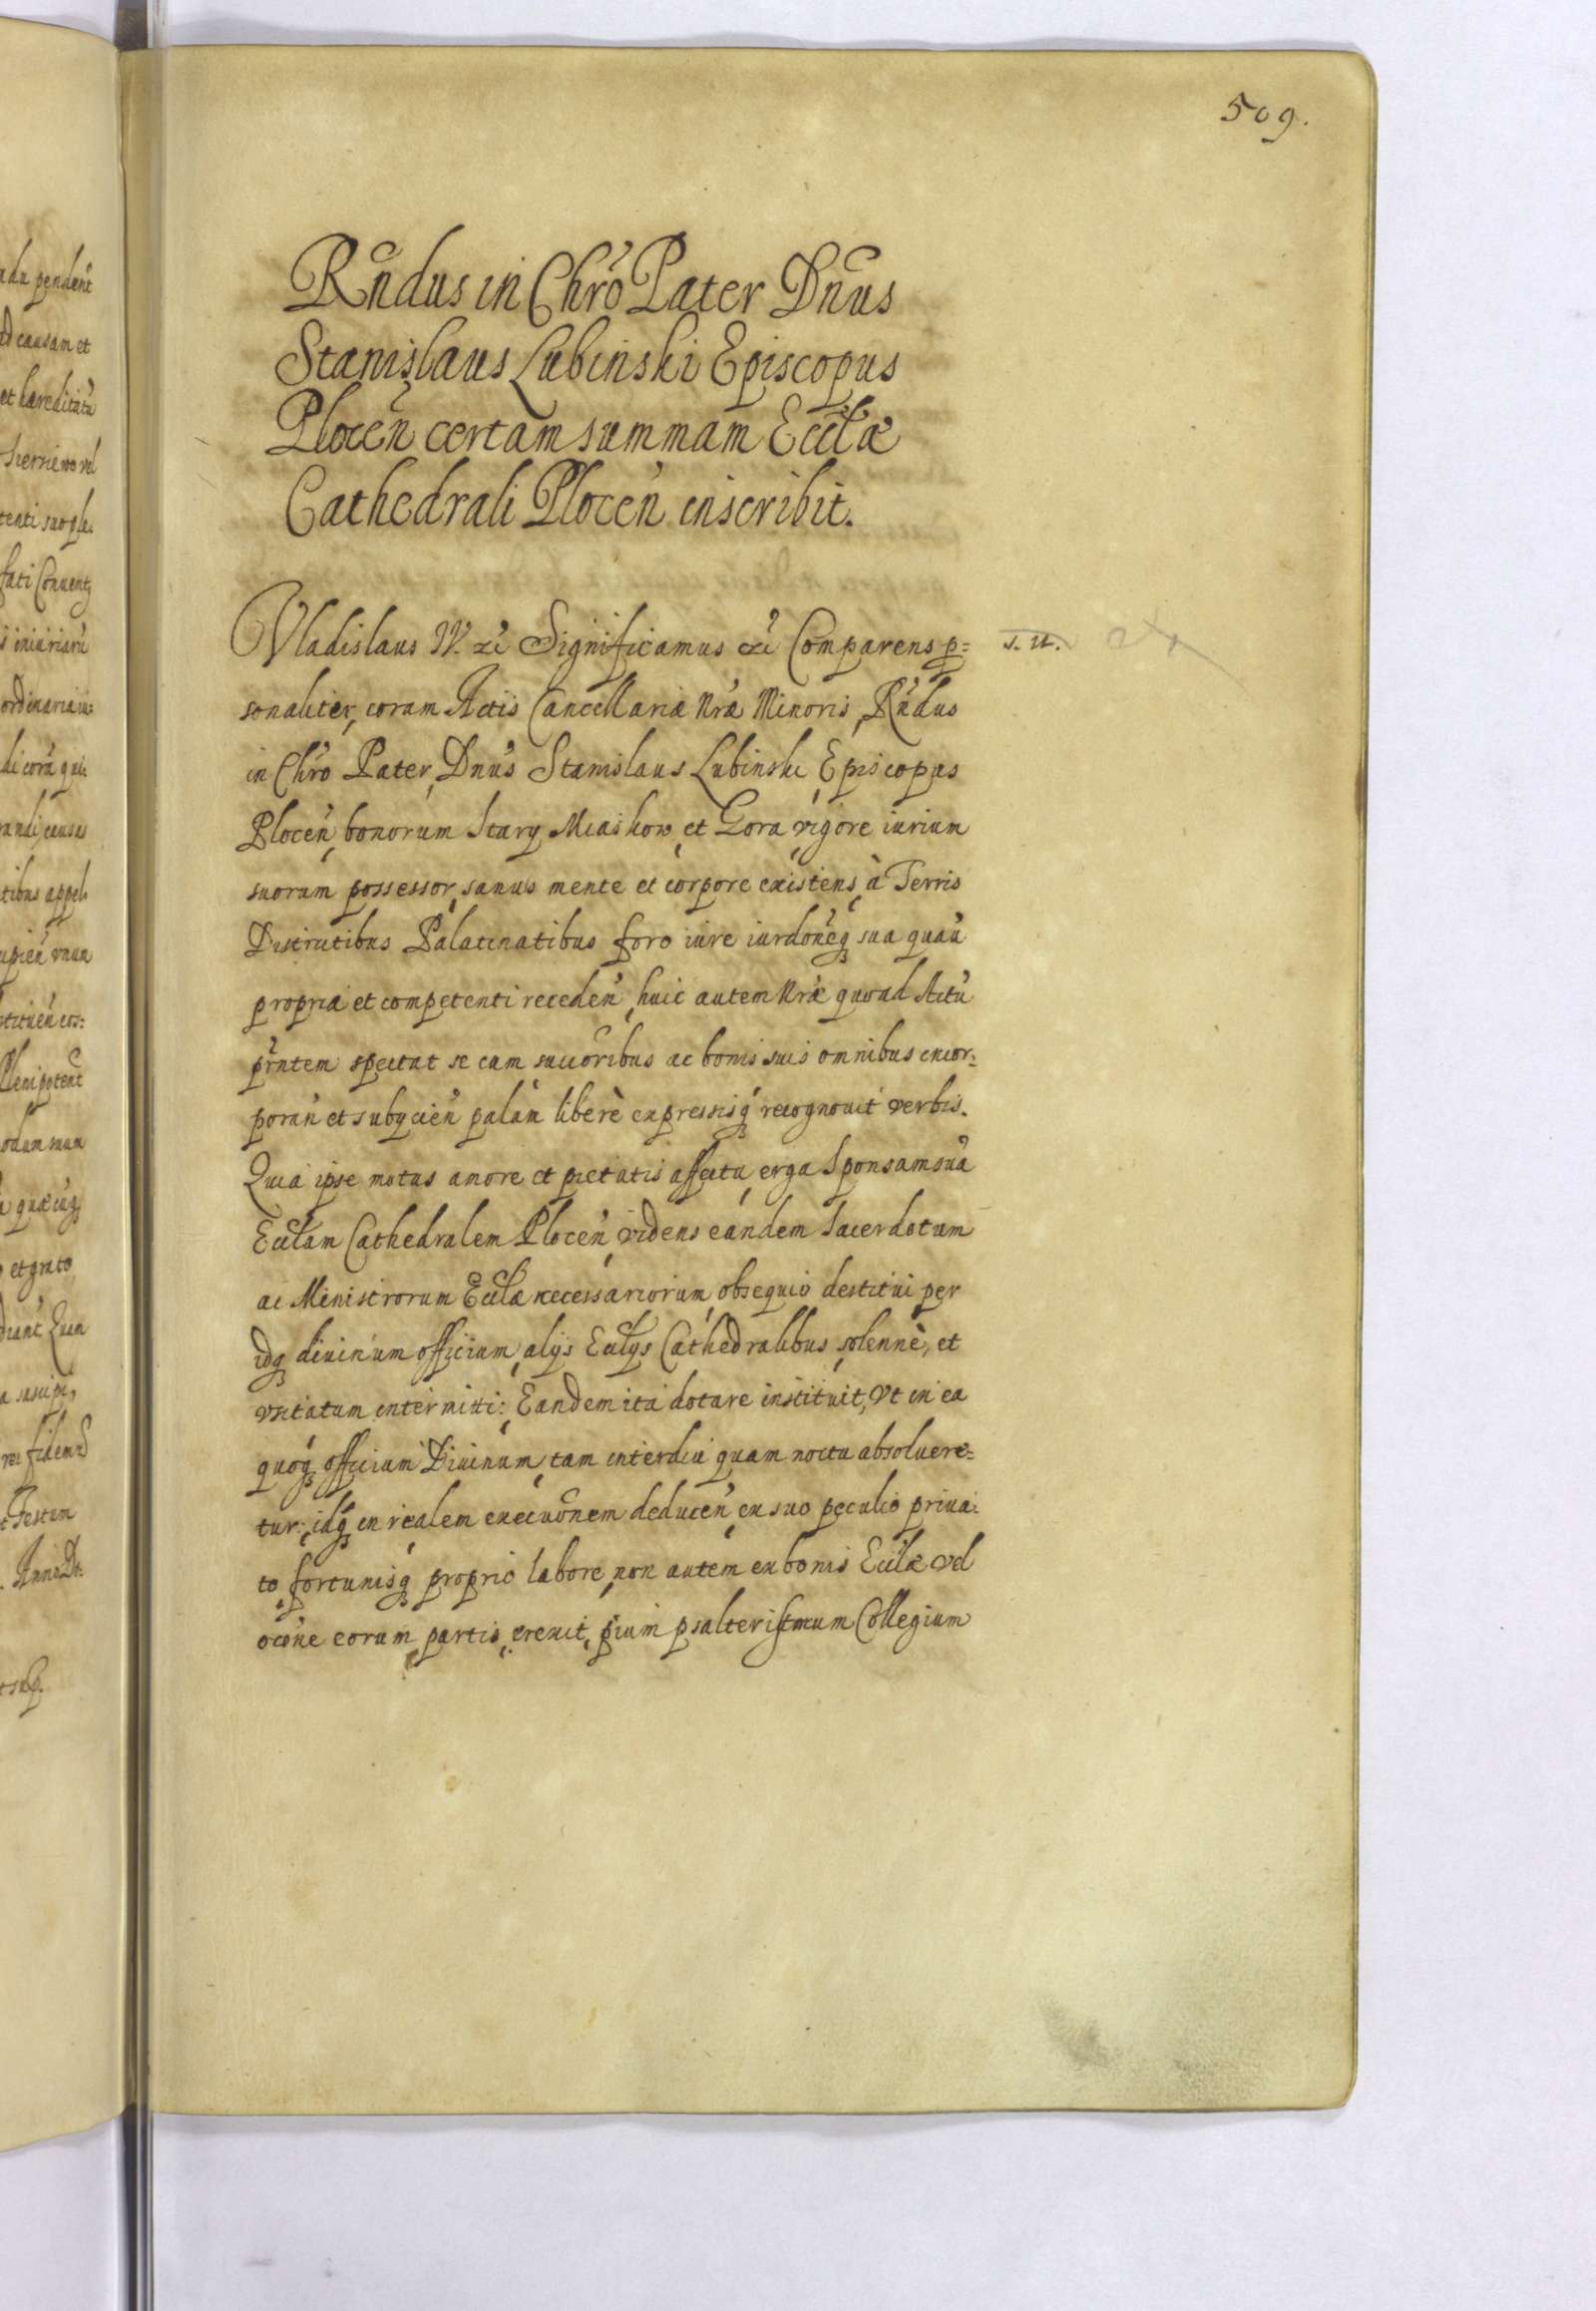 509.
Rndus in Chro Pater Dnus
Stanislaus Lubinski Episcopus
Plocen certam summam Eccla
Cathedrali Plocen inscribit.
Vladislaus IV. Significamus Comparens p=
sonaliter, coram Actis Cancellariæ Nræ Minoris, Rndus
in Chro Pater, Dnus Stanislaus Lubinski, Episcopus
Plocen, bonorum Stary Miaskow, et Gora, vigore iurium
suorum possessor, sanus mente et corpore existens, à Terris
Districtibus Palatinatibus foro iure iurdoneq sua quau
propria et competenti receden, huic autem Nræ quoad Actu
pntem spectat se cum succoribus ac bonis suis omnibus incor=
poran et subycien palam liberè expressisq recognovit verbis.
Quia ipse motus amore et pietatis affectu, erga Sponsam sua
Ecclam Cathedralem Plocen, videns eandem Sacerdotum
ac Ministrorum Ecclæ necessariorum, obsequio destitui per
idq divinum officium, alijs Ecclys Cathedralibus, solennè, et
usitatum intermitti: Eandem ita dotare instituit, Vt in ea
quoq officium Divinum, tam interdiu quam noctu absolvere=
tur: idq in realem execuonem deducen, ex suo peculio priva:
to, fortunisq proprio labore, non autem ex bonis Ecclæ vel
ocone eorum, partis, erexit, pium psalteristarum Collegium
ada pendent
ad causam et
et hæreditatu
tenti suo ple.
fati Convent
s iniuriaru
ordinaria iu:
di cora qui:
randi causas
tibus appel
upien unum
Plenipotent
odum suum
et grato
a suscipi,
rei fidem
Testim
Anno D